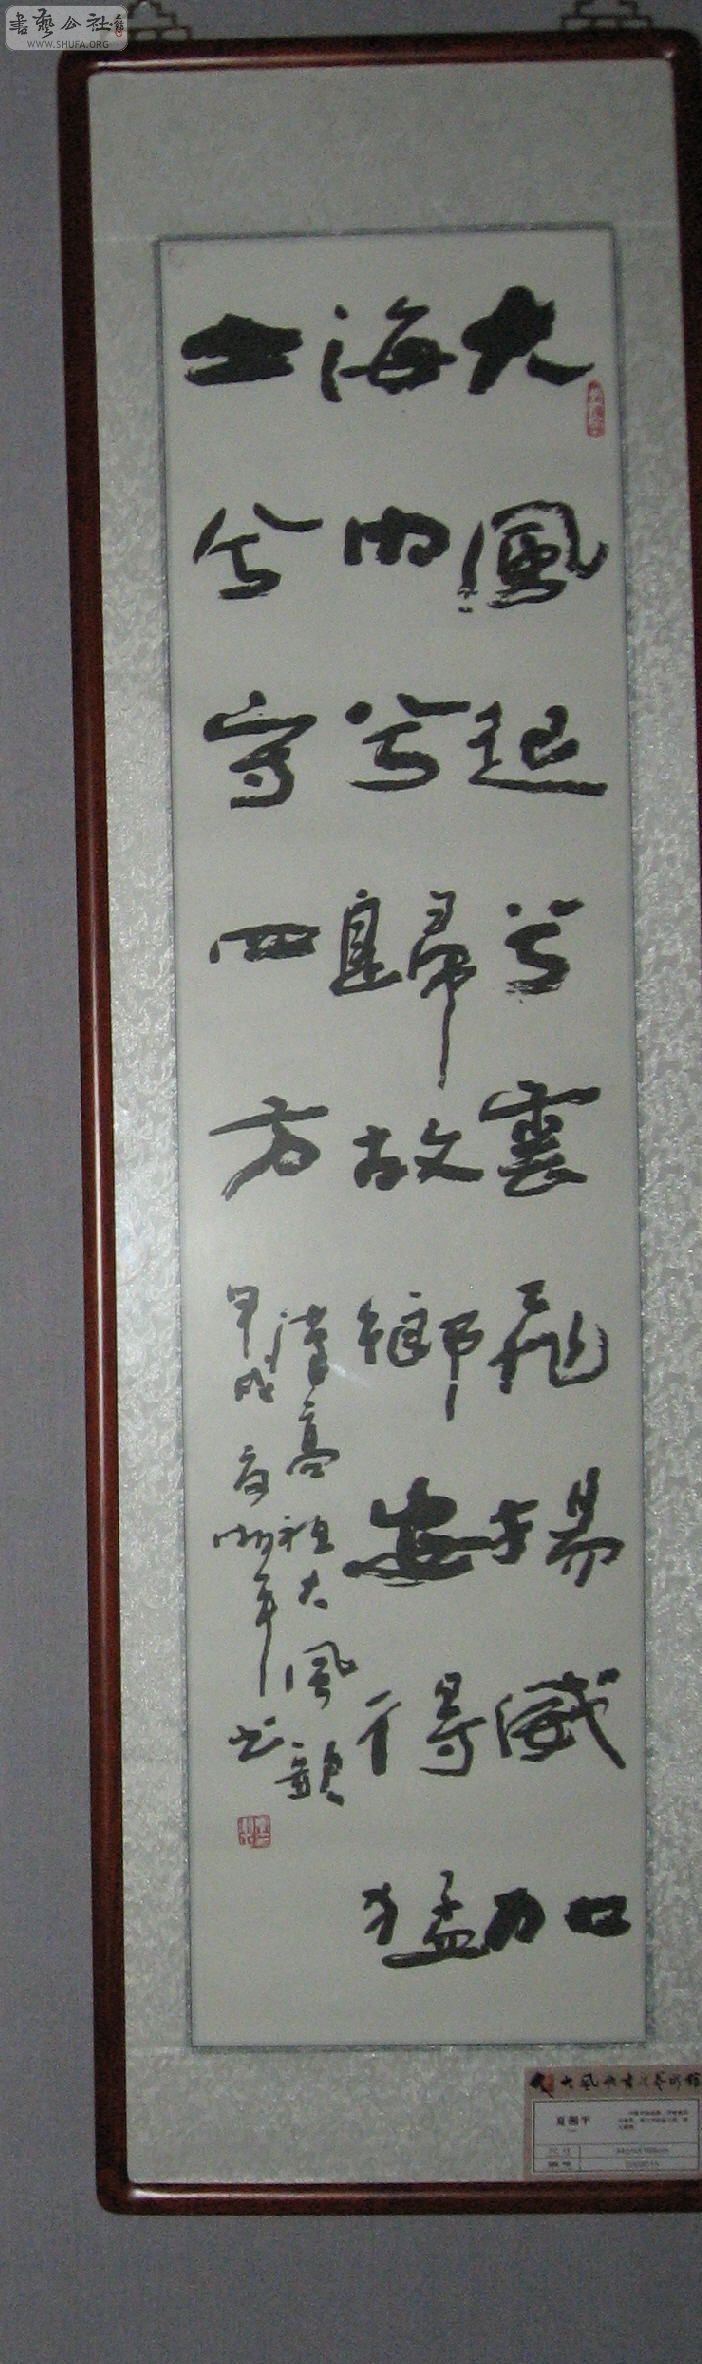 大風起兮雲飛揚威加
海内兮歸故鄉安得猛
士兮守四方
漢高祖大風歌
甲戌夏湘平书
書藝公社
WWW.SHUFA.ORG
大風歌書法藝術館
夏湘平